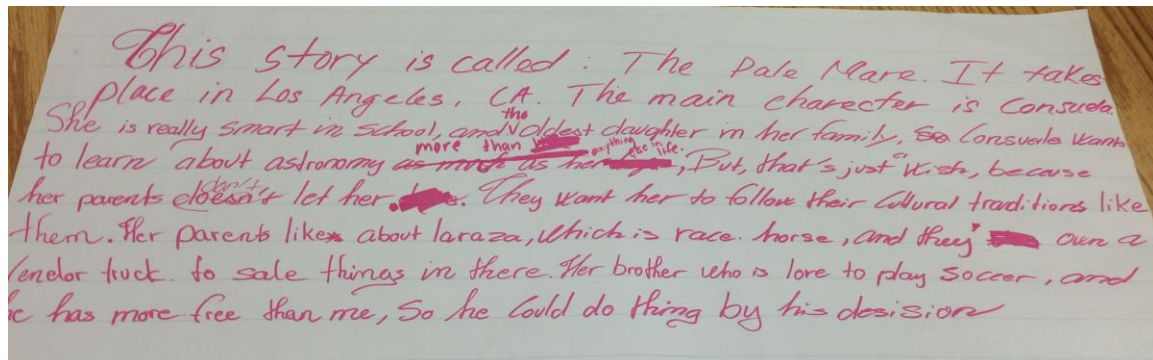 This story is called : The Pale Mare. It takes
place in Los Angeles, CA. The main charecter is Consuela.
She is really smart in school, and the oldest daughter in her family. So Consuela want
to learn about astronomy more than anything else in life. But, that's just a wish, because
her parents don't let her. They want her to follow their Cultural traditions like
them. Her parents like about laraza, which is race horse, and they own a
Vendor truck. to sale things in there. Her brother who is love to play soccer, and
he has more free than me, So he Could do thing by his desision